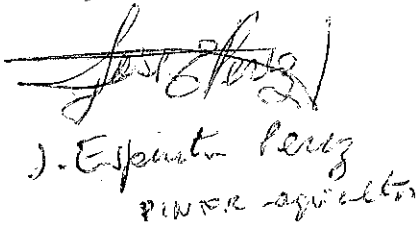 José Perez
J. Espiritu Perez
PINTER agricultor